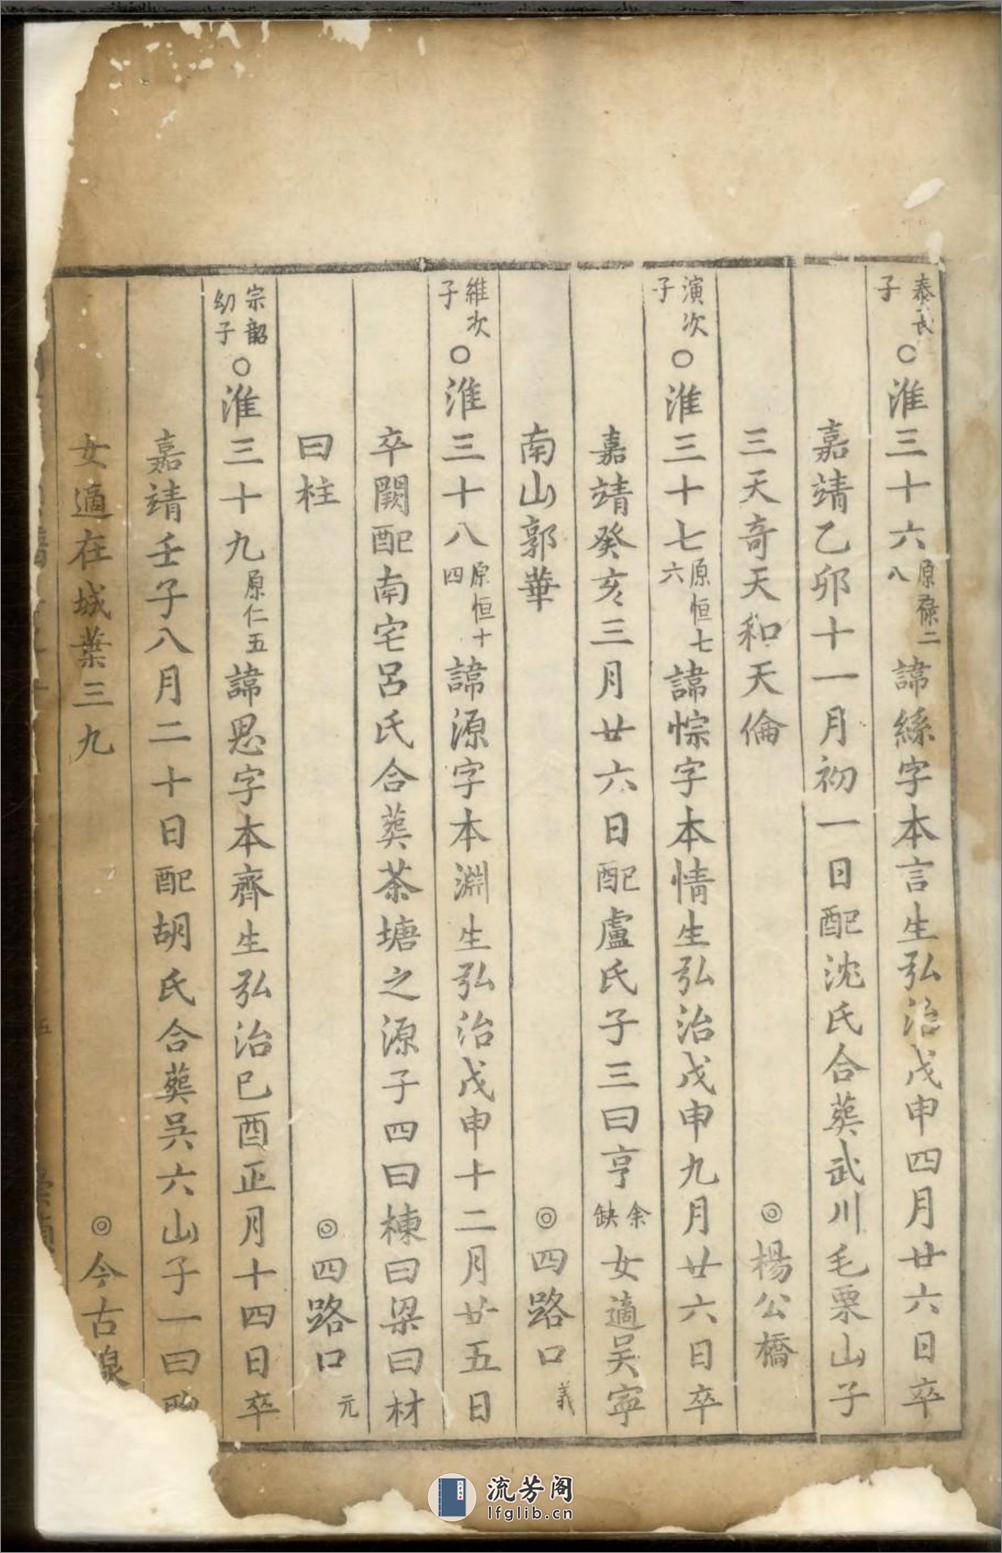 泰長子○淮三十六原祿二八諱絲字本言生弘治戊申四月廿六日卒
嘉靖乙卯十一月初一日配沈氏合葬武川毛栗山子
三天奇天和天倫◎楊公橋
演次子○淮三十七原恒七六諱悰字本情生弘治戊申九月廿六日卒
嘉靖癸亥三月廿六日配盧氏子三曰亨余缺女適吴寧
南山郭華◎四路口義
維次子○淮三十八原恒十四諱源字本淵生弘治戊申十二月廿五日
卒闕配南宅呂氏合葬茶塘之源子四曰棟曰梁曰材
曰柱◎四路口元
宗韶幼子○淮三十九原仁五諱思字本齊生弘治已酉正月十四日卒
嘉靖壬子八月二十日配胡氏合葬吴六山子一曰
女適在城葉三九◎今古
五
流芳阁
lfglib.cn